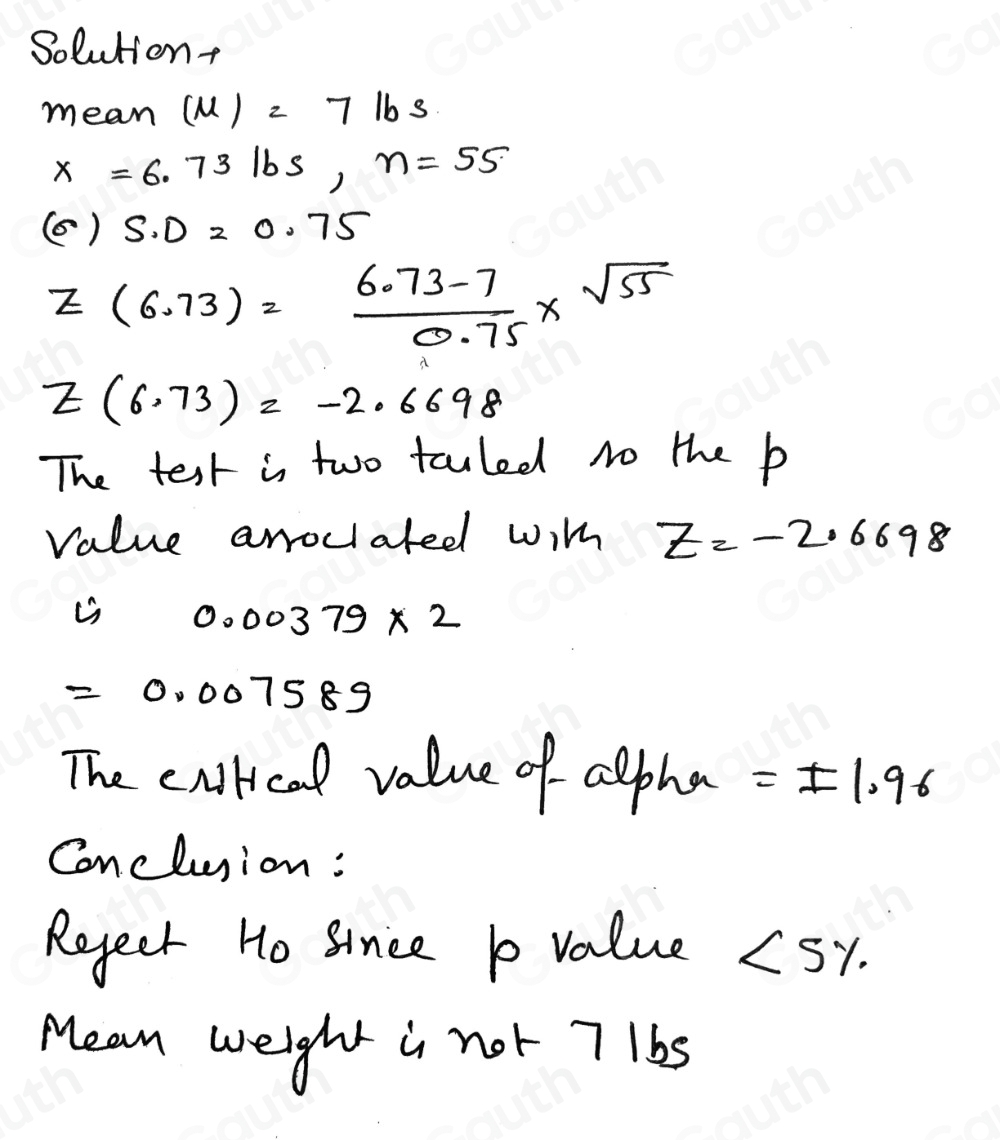 Solution→
mean (μ) = 7 lbs.
x = 6.73 lbs, n = 55
(σ) S.D = 0.75
Z (6.73) = 6.73-7 / 0.75 × √55
Z (6.73) = -2.6698
The test is two tailed so the p
value associated with Z = -2.6698
is 0.00379 × 2
= 0.007589
The critical value of alpha = ±1.96
Conclusion:
Reject Ho since p value <5%.
Mean weight is not 7 lbs
Gauth